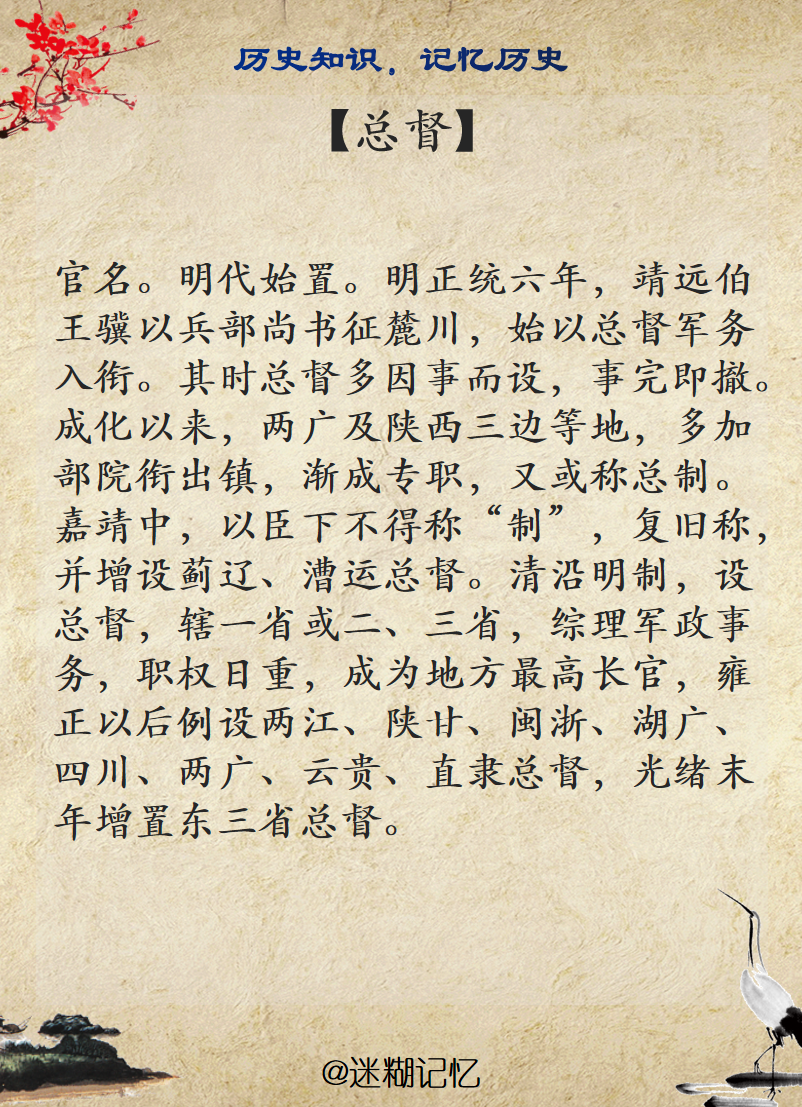 历史知识，记忆历史
【总督】
官名。明代始置。明正统六年，靖远伯
王骥以兵部尚书征麓川，始以总督军务
入衔。其时总督多因事而设，事完即撤。
成化以来，两广及陕西三边等地，多加
部院衔出镇，渐成专职，又或称总制。
嘉靖中，以臣下不得称“制”，复旧称，
并增设蓟辽、漕运总督。清沿明制，设
总督，辖一省或二、三省，综理军政事
务，职权日重，成为地方最高长官，雍
正以后例设两江、陕甘、闽浙、湖广、
四川、两广、云贵、直隶总督，光绪末
年增置东三省总督。
@迷糊记忆